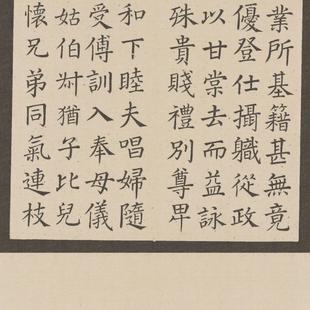 業所基籍甚無竟
優登仕攝軄從政
以甘棠去而益詠
殊貴賤禮別尊卑
和下睦夫唱婦隨
受傅訓入奉母儀
姑伯叔猶子比兒
懷兄弟同氣連枝